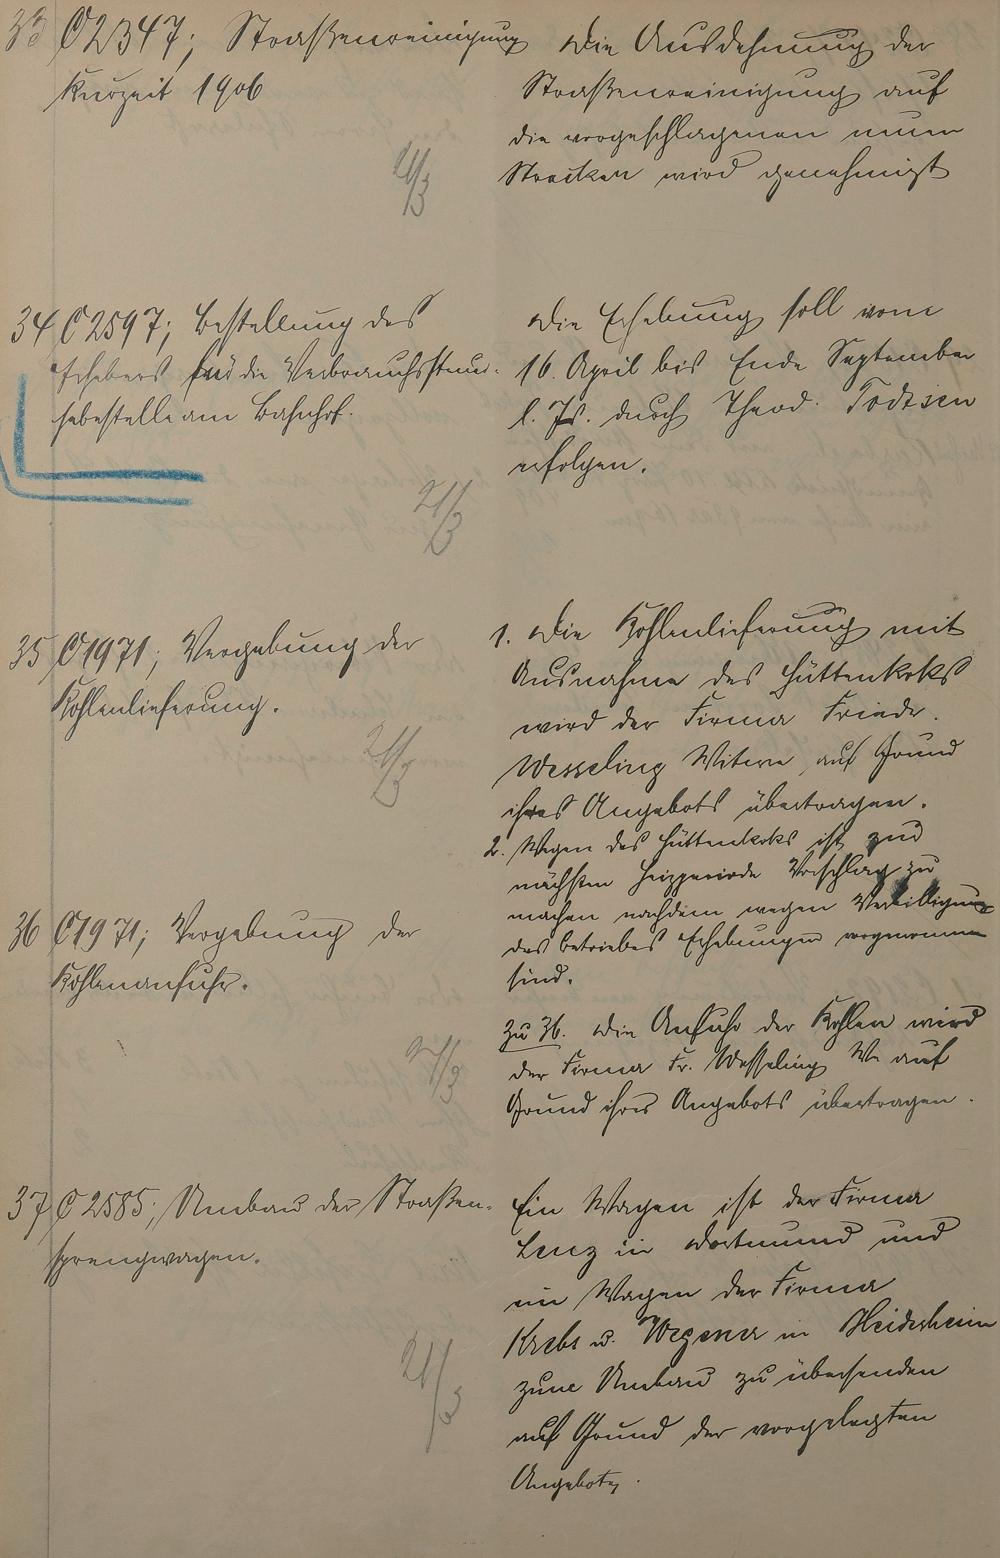 33 C 2347; Straßenreinigung
Kurzeit 1906
21/3
Die Ausdehnung der
Straßenreinigung auf
die vorgeschlagenen neuen
Strecken wird genehmigt
34 C 2597; Bestellung des
Erhebers für die Verbrauchssteuer-
hebestelle am Bahnhof.
21/3
Die Erhebung soll vom
16. April bis Ende September
l. Js. durch Theod. Todtsen
erfolgen.
35 C 1971; Vergebung der
Kohlenlieferung.
21/3
1. Die Kohlenlieferung mit
Ausnahme des Hüttenkoks
wird der Firma Friedr.
Wesseling Witwe auf Grund
ihres Angebots übertragen.
2. Wegen des Hüttenkoks ist zur
nächsten Heizperiode Vorschlag zu
machen nachdem wegen
des Betriebes Erhebungen vorgenommen
sind.
36 C 1971; Vergebung der
Kohlenanfuhr.
21/3
Zu 36. Die Anfuhr der Kohlen wird
der Firma Fr. Wesseling We auf
Grund ihres Angebots übertragen.
37 C 2585; Umbau der Straßen-
sprengwagen.
21/3
Ein Wagen ist der Firma
Lenz in Dortmund und
ein Wagen der Firma
Krebs u. Wegener in
zum Umbau zu übersenden
auf Grund der vorgelegten
Angebote.